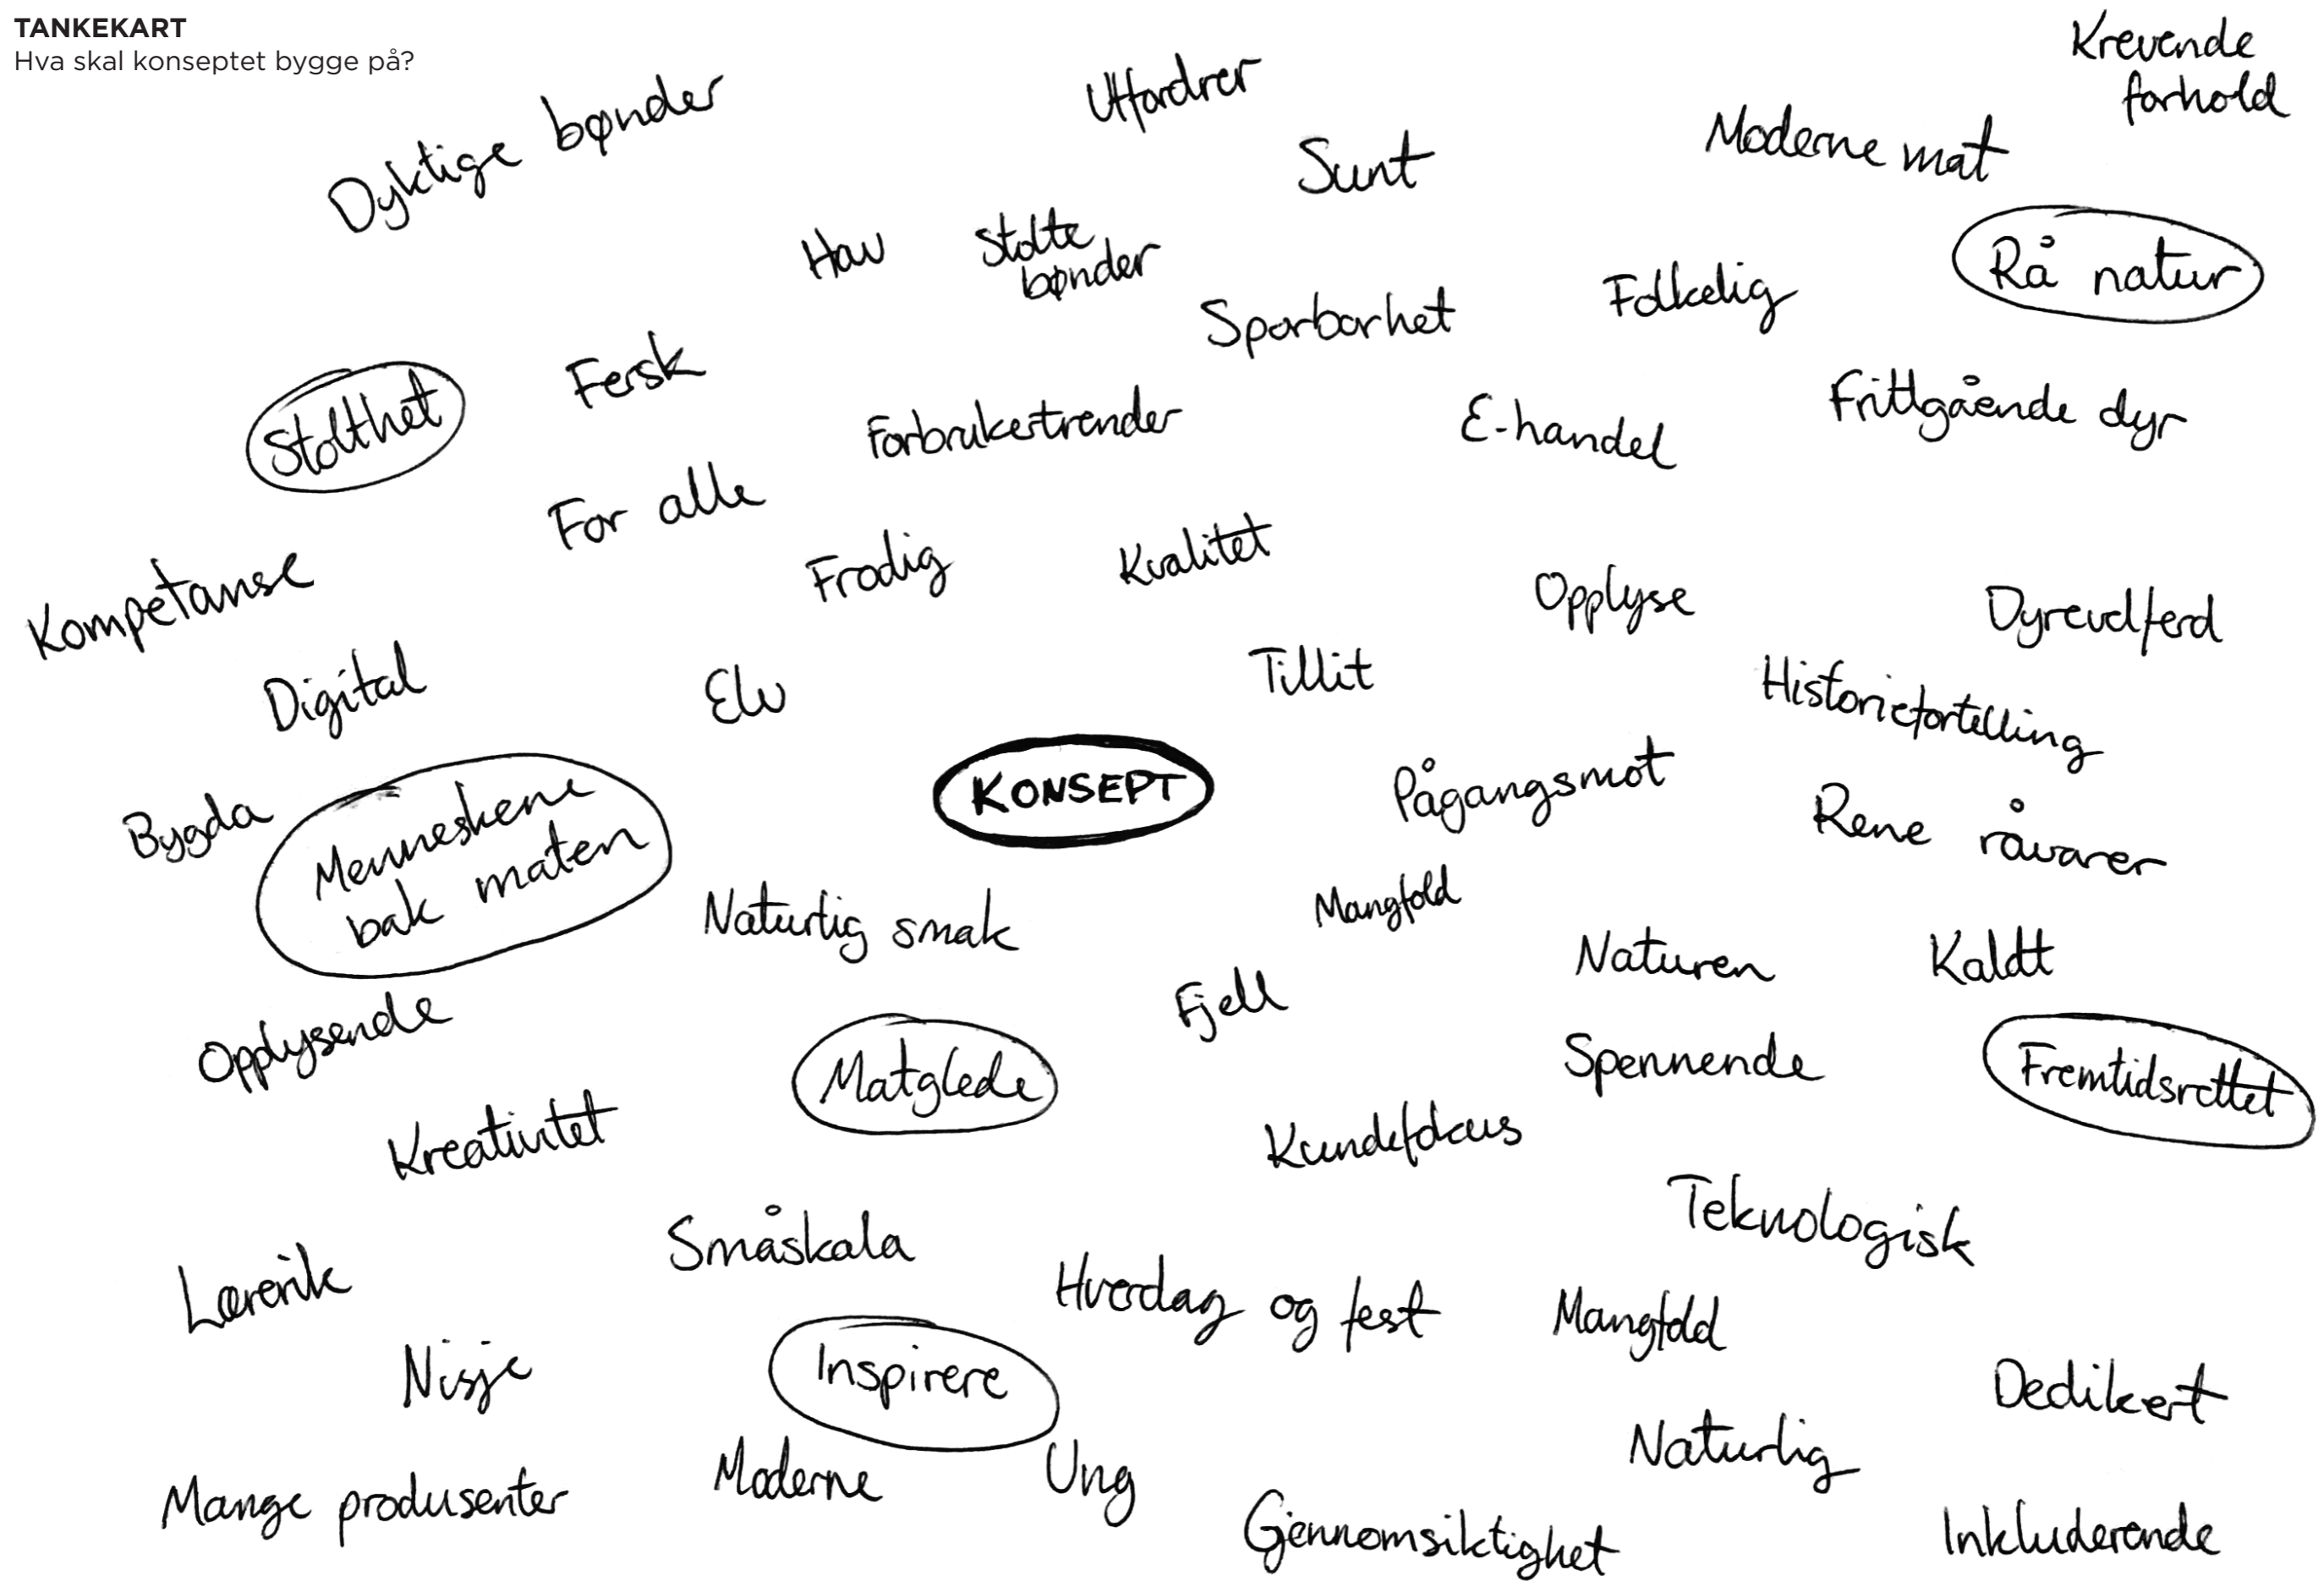 TANKEKART
Hva skal konseptet bygge på?
Krevende
forhold
Utfordrer
Dyktige bønder
Moderne mat
Sunt
Hav
Stolte
bønder
Rå natur
Folkelig
Sporbarhet
Fersk
Stolthet
Forbrukertrender
E-handel
Frittgående dyr
For alle
Frodig
Kvalitet
Kompetanse
Opplyse
Dyrevelferd
Digital
Elv
Tillit
Historiefortelling
KONSEPT
Pågangsmot
Bygda
Menneskene
bak maten
Rene råvarer
Naturlig smak
Mangfold
Naturen
Kaldt
Fjell
Opplysende
Matglede
Spennende
Fremtidsrettet
Kreativitet
Kundefokus
Teknologisk
Småskala
Lærerik
Hverdag og fest
Mangfold
Nisje
Inspirere
Dedikert
Naturlig
Mange produsenter
Moderne
Ung
Gjennomsiktighet
Inkluderende